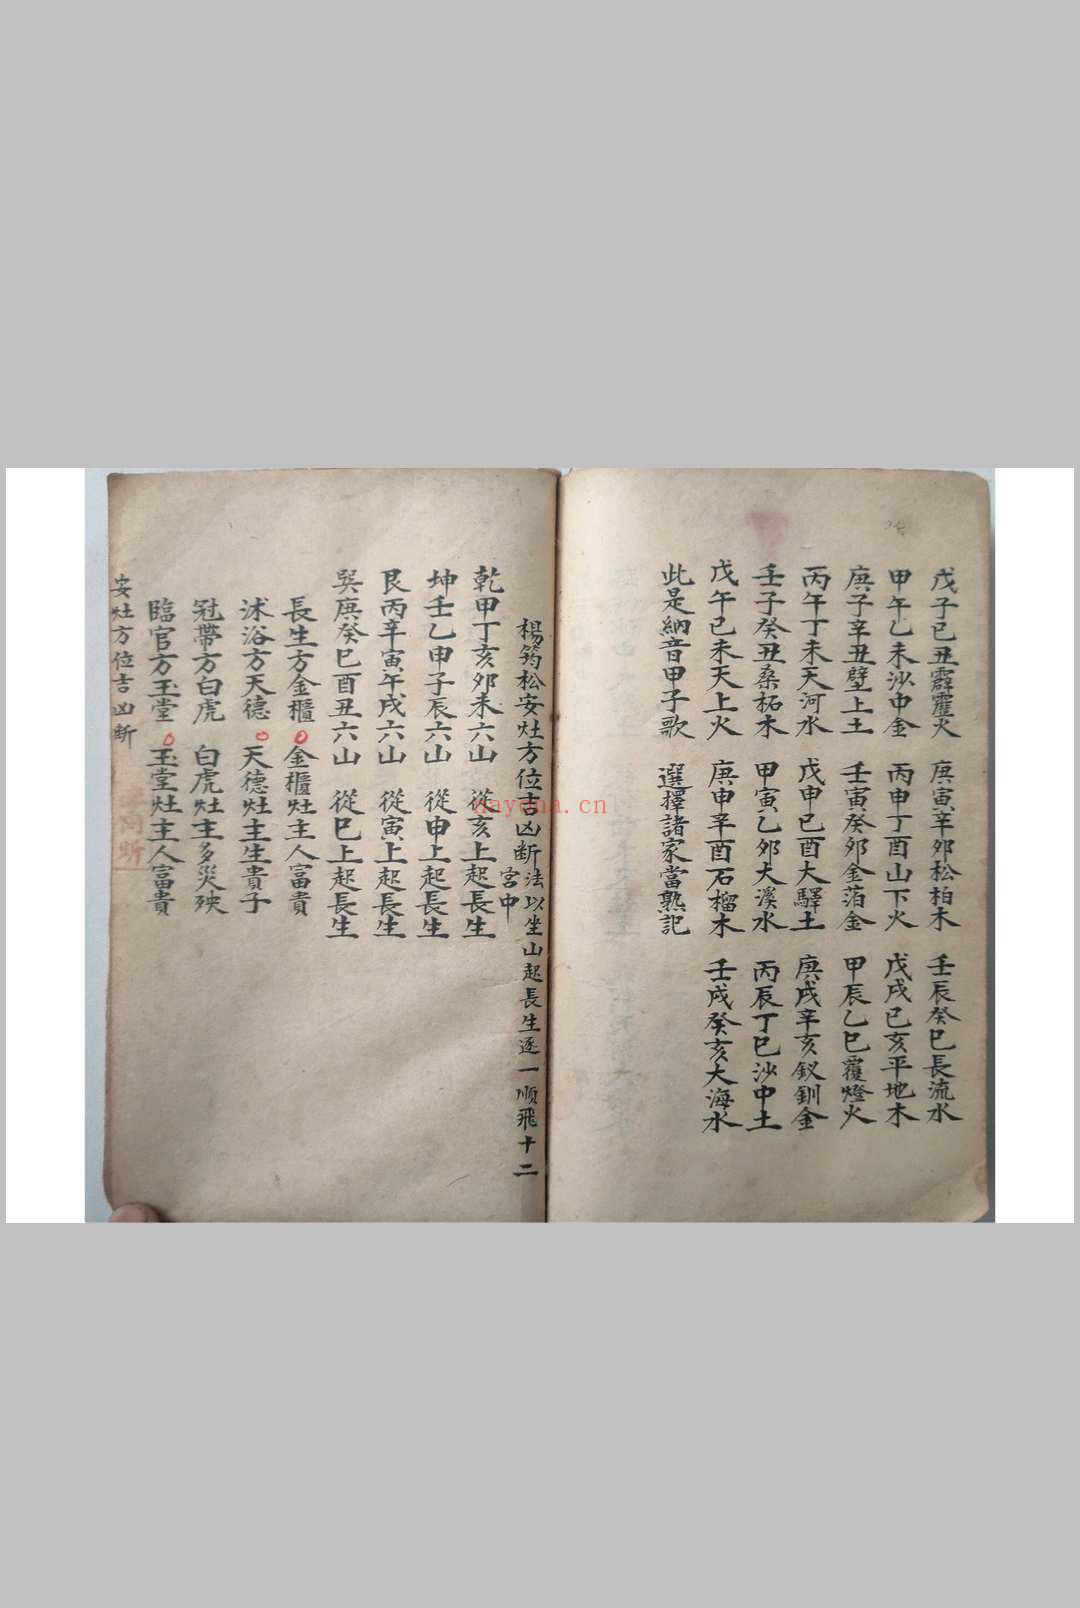 戊子己丑霹靂火 庚寅辛夘松柏木 壬辰癸巳長流水
甲午乙未沙中金 丙申丁酉山下火 戊戌己亥平地木
庚子辛丑壁上土 壬寅癸夘金箔金 甲辰乙巳覆燈火
丙午丁未天河水 戊申己酉大驛土 庚戌辛亥釵釧金
壬子癸丑桑柘木 甲寅乙夘大溪水 丙辰丁巳沙中土
戊午己未天上火 庚申辛酉石榴木 壬戌癸亥大海水
此是納音甲子歌 選擇諸家當熟記
楊筠松安灶方位吉凶断 法以坐山起長生逐一順飛十二
宮中
乾甲丁亥夘未六山 從亥上起長生
坤壬乙申子辰六山 從申上起長生
艮丙辛寅午戌六山 從寅上起長生
巽庚癸巳酉丑六山 從巳上起長生
長生方金櫃 金櫃灶主人富貴
沐浴方天德 天德灶主生貴子
冠帶方白虎 白虎灶主多災殃
臨官方玉堂 玉堂灶主人富貴
安灶方位吉凶断
nayona.cn